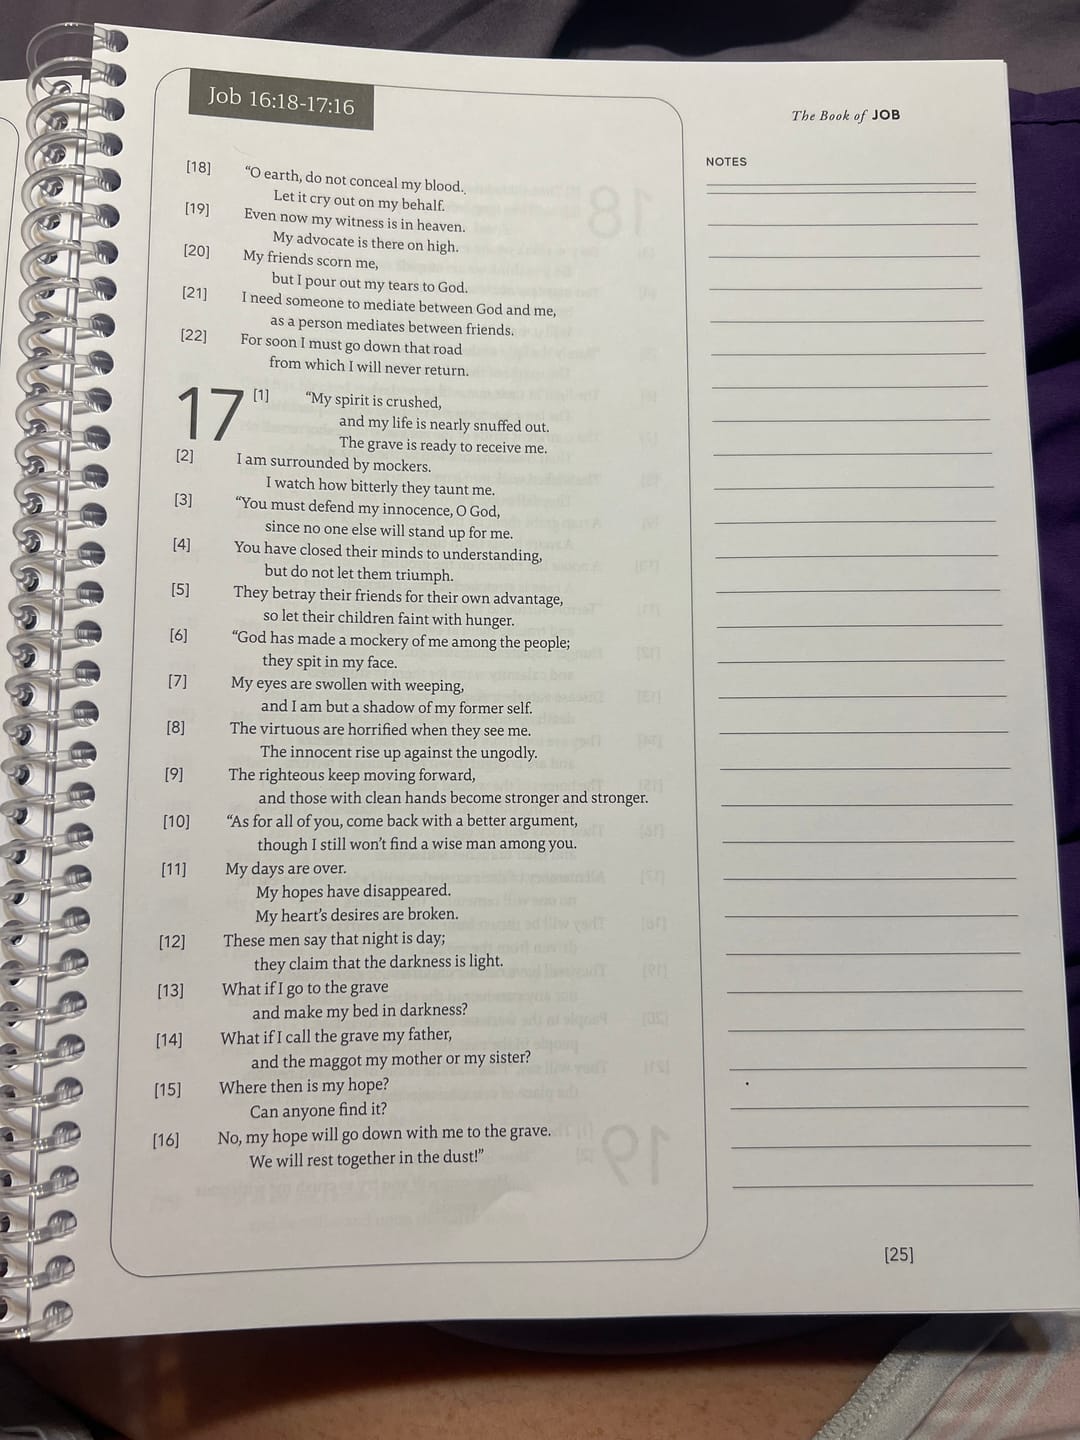 Job 16:18-17:16
The Book of JOB
NOTES
[18] “O earth, do not conceal my blood.
Let it cry out on my behalf.
[19] Even now my witness is in heaven.
My advocate is there on high.
[20] My friends scorn me,
but I pour out my tears to God.
[21] I need someone to mediate between God and me,
as a person mediates between friends.
[22] For soon I must go down that road
from which I will never return.
17 [1] “My spirit is crushed,
and my life is nearly snuffed out.
The grave is ready to receive me.
[2] I am surrounded by mockers.
I watch how bitterly they taunt me.
[3] “You must defend my innocence, O God,
since no one else will stand up for me.
[4] You have closed their minds to understanding,
but do not let them triumph.
[5] They betray their friends for their own advantage,
so let their children faint with hunger.
[6] “God has made a mockery of me among the people;
they spit in my face.
[7] My eyes are swollen with weeping,
and I am but a shadow of my former self.
[8] The virtuous are horrified when they see me.
The innocent rise up against the ungodly.
[9] The righteous keep moving forward,
and those with clean hands become stronger and stronger.
[10] “As for all of you, come back with a better argument,
though I still won’t find a wise man among you.
[11] My days are over.
My hopes have disappeared.
My heart’s desires are broken.
[12] These men say that night is day;
they claim that the darkness is light.
[13] What if I go to the grave
and make my bed in darkness?
[14] What if I call the grave my father,
and the maggot my mother or my sister?
[15] Where then is my hope?
Can anyone find it?
[16] No, my hope will go down with me to the grave.
We will rest together in the dust!”
[25]